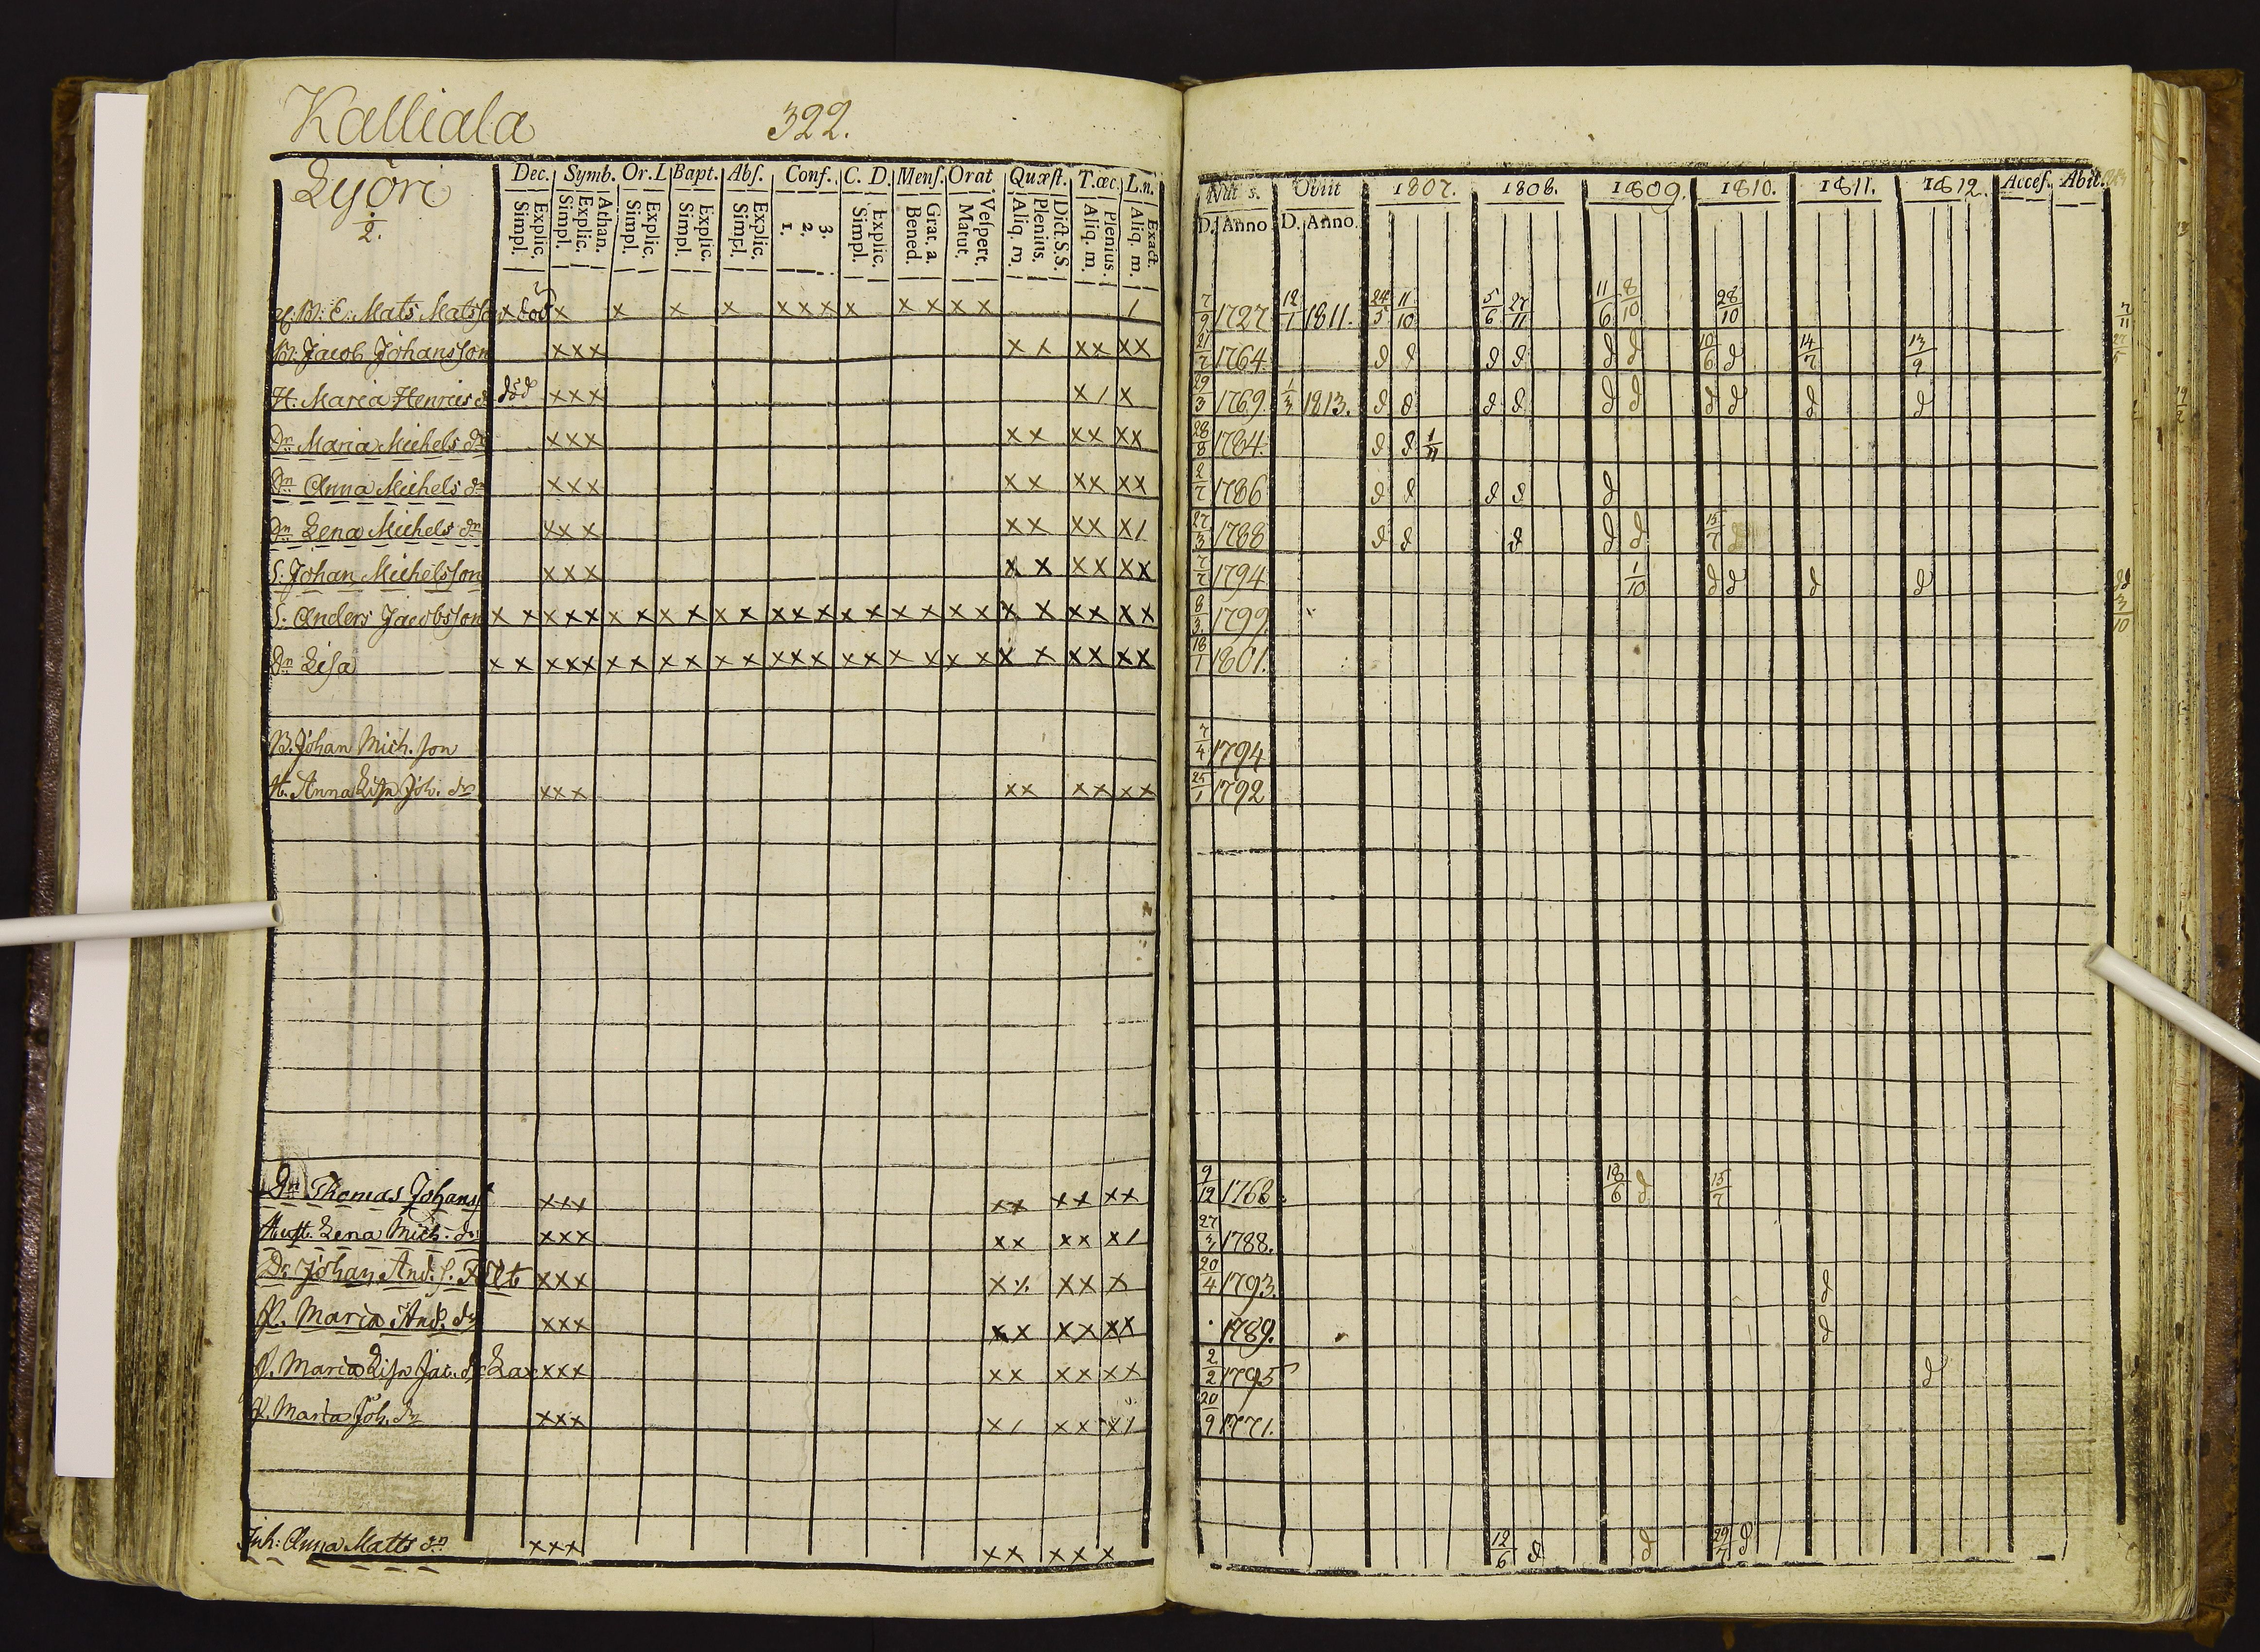 Kalliala 322.
Lyöri
2.
Dec. Symb. Or. L Bapt. Abſ. Conf. C. D. Menſ. Orat. Quæſt. T.œc. L.n.
Explic. Simpl. Athan. Explic. Simpl. Explic. Simpl. Explic. Simpl. Explic. Simpl. 3. 2. 1. Explic. Simpl. Grat. a. Bened. Veſpert. Matut. Dict. S.S. Plenius. Aliq. m. Plenius. Aliq. m. Exact. Aliq. m.
Nat s. Obiit 1807. 1808. 1809. 1810. 1811. 1812. Acceſ. Abit.
D. Anno D. Anno.
Mats Matsſon x död x x x x x x x x x x x x / 7/9 1727 12/1 1811. 24/5 11/10 5/6 27/11 11/6 8/10 28/10 7/11
B: Jacob Johansſon x x x x x x x x x 21/7 1764 d d d d d d 10/6 d 14/7 13/9
H: Maria Henrics d död x x x x / x 29/3 1769. 1/3 1813. d d d d d d d d d d
Dr Maria Michels dr x x x x x x x x x 28/8 1784. d d 1/11
Dr Anna Michels dr x x x x x x x x x 2/7 1786 d d d d d
Dr Lena Michels dr x x x x x x x x / 27/3 1788 d d d d d 15/7 d
S: Johan Michelsſon x x x x x x x x x 7/7 1794 1/10 d d d d
S: Anders Jacobsſon x x x x x x x x x x x x x x x x x x x x x x x x x x 8/3. 1799. 3/10
Dr Liſa x x x x x x x x x x x x x x x x x x x x x x x x x x 18/1 1801.
B. Johan Mich. ſon 7/4 1794
H. Anna Liſa Joh. dr x x x x x x x x x 25/1 1792
Dr Thomas Johansſ x x x x x x x x x 9/12 1768. 18/6 d 15/7
Huſt. Lena Mich. dr x x x x x x x x / 27/3 1788.
Dr Johan And. ſ. x x x x /. x x x 20/4 1793. d
P. Maria And. dr x x x x x x x x x 1789. d
P. Maria Liſa Jac. dr Lax x x x x x x x x x 2/2 1795 d
P. Maria Joh. dr x x x x / x x x / 20/9 1771.
Inh: Anna Matts dr x x x x x x x x 12/6 d d 29/7 d